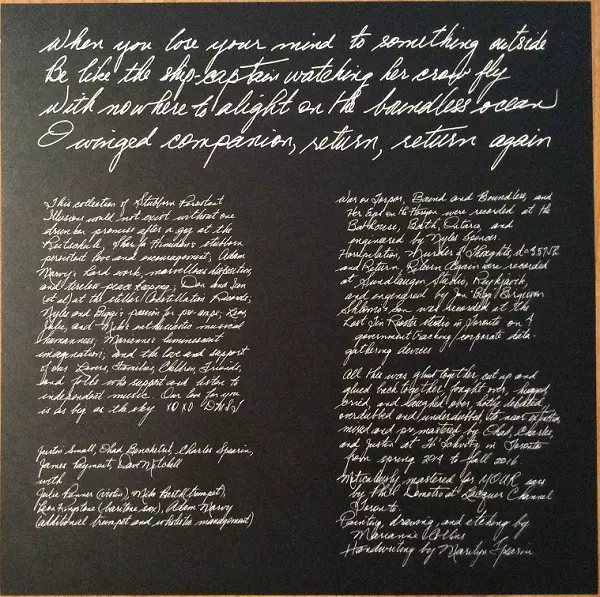 When you lose your mind to something outside
Be like the ship-captain watching her crow fly
With nowhere to alight on the boundless ocean
O winged companion, return, return again
This collection of Stubborn Persistent
Illusions would not exist without one
drunken promise after a gig at the
stubborn
persistent love and encouragement; Adam
hard work, marvellous
and tireless peace keeping; Don and Ian
(et al) at the stellar Constellation Records;
Nyles and passion for pre-amps; Leon,
Julie, and Mike's enthusiastic musical
humanness; Marianne's luminescent
imagination; and the love and support
of our Lovers, Families, Children, Friends,
and folks who support and listen to
independent music. Our love for you
is as big as the sky XOXO DMST
Justin Small, Ohad Benchetrit, Charles Spearin,
James Payment, Dave Mitchell
with
Julie Penner (violin), Mike (trumpet),
Leon Kingstone (baritone sax), Adam Marvy
(additional trumpet and whitetie management)
War on Torpor, Bound and Boundless, and
Her Eyes on the Horizon were recorded at the
Bathouse, Bath, Ontario, and
engineered by Nyles Spencer.
Horripilation, Murder of Thoughts,
and Return, Return Again were recorded
at Sundlaugin Studio, Reykjavik,
and engineered by Birgisson
Shlomo's Son was recorded at the
Lost Tin Rooster studio in Toronto on 4
government tracking/corporate data-
gathering devices
All this was glued together cut up and
glued back together, fought over, hugged,
cried, and laughed over, hotly debated,
overdubbed and underdubbed, to near extinction
mixed and pre-mastered by Ohad, Charles,
and Justin at in Toronto
from spring 2014 to fall 2016.
Meticulously mastered for YOUR ears
by Phil Demetro at Lacquer Channel
Toronto.
Painting, drawing, and etching by
Marianne Collins
Handwriting by Marilyn Spearin